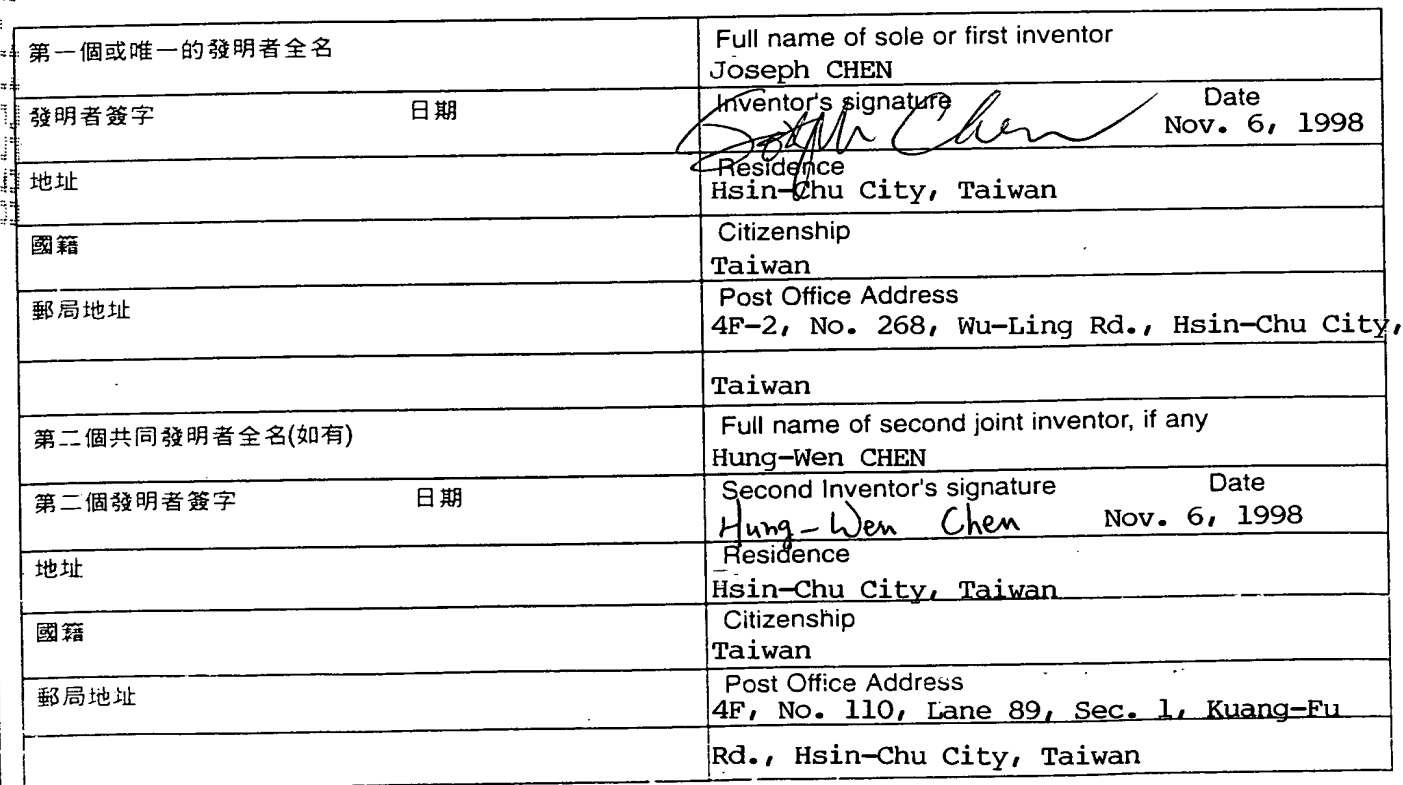 第一個或唯一的發明者全名
Full name of sole or first inventor
Joseph CHEN
發明者簽字 日期
Inventor's signature Date
Joseph Chen Nov. 6, 1998
地址
Residence
Hsin-Chu City, Taiwan
國籍
Citizenship
Taiwan
郵局地址
Post Office Address
4F-2, No. 268, Wu-Ling Rd., Hsin-Chu City,
Taiwan
第二個共同發明者全名(如有)
Full name of second joint inventor, if any
Hung-Wen CHEN
第二個發明者簽字 日期
Second Inventor's signature Date
Hung-Wen Chen Nov. 6, 1998
地址
Residence
Hsin-Chu City, Taiwan
國籍
Citizenship
Taiwan
郵局地址
Post Office Address
4F, No. 110, Lane 89, Sec. 1, Kuang-Fu
Rd., Hsin-Chu City, Taiwan